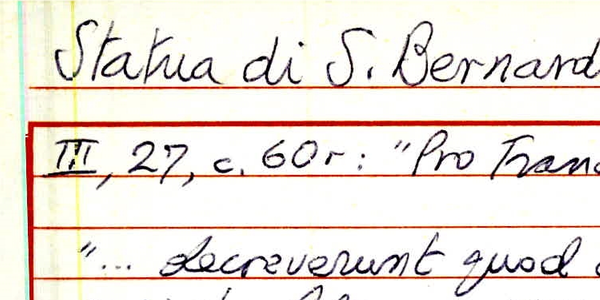 Statua di S. Bernard
III, 27, c. 60r: "Pro Franc
"... decreverunt quod